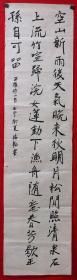 空山新雨後天氣晚来秋明月松間照清泉石
上流竹喧歸浣女蓮動下漁舟隨意春芳歇王
孫自可留